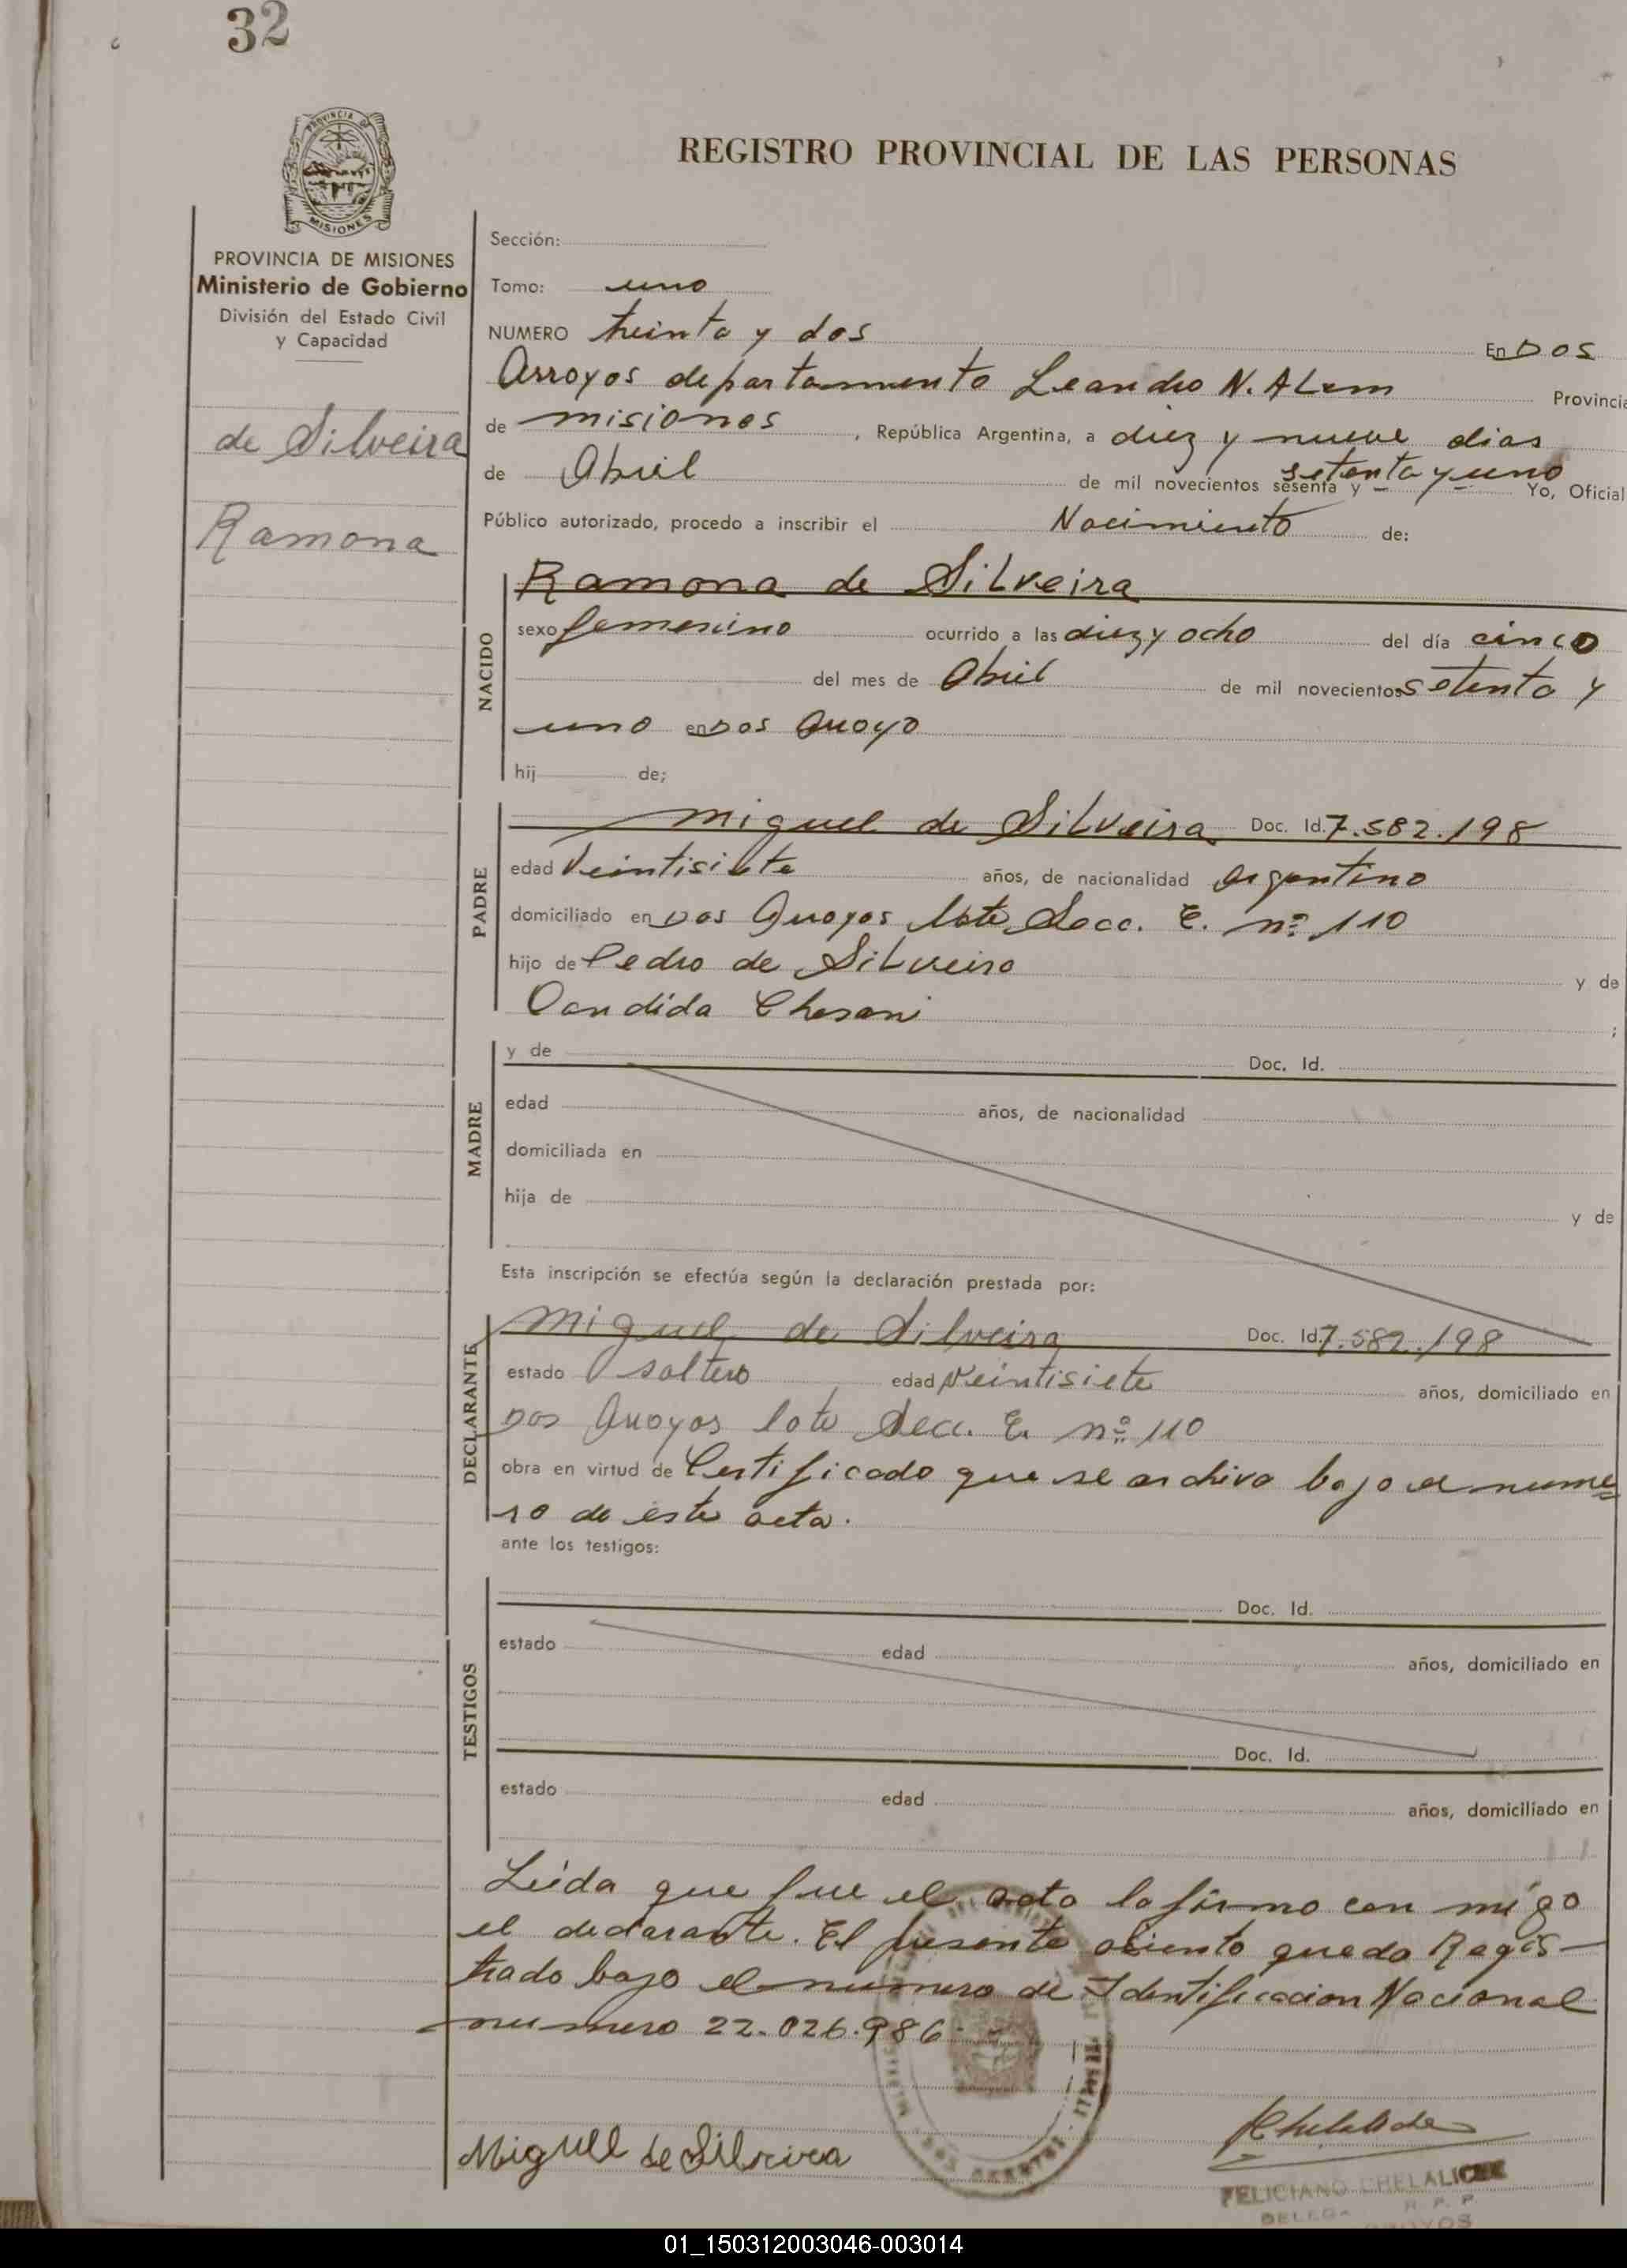 32
PROVINCIA DE
MISIONES
REGISTRO PROVINCIAL DE LAS PERSONAS
PROVINCIA DE MISIONES
Ministerio de Gobierno
División del Estado Civil
y Capacidad
de Silveira
Ramona
Sección:
Tomo: uno
NUMERO treinta y dos En Dos
Arroyos departamento Leandro N. Alem Provincia
de misiones, República Argentina, a diez y nueve dias
de Abril de mil novecientos sesenta y setenta y uno Yo, Oficial
Público autorizado, procedo a inscribir el Nacimiento de:
NACIDO
Ramona de Silveira
sexo femenino ocurrido a las diez y ocho del día cinco
del mes de Abril de mil novecientos setenta y
uno en Dos Arroyo
hij de;
PADRE
Miguel de Silveira Doc. Id. 7.582.198
edad Veintisiete años, de nacionalidad argentino
domiciliado en Dos Arroyos Lote Secc. E. nº 110
hijo de Pedro de Silveira y de
Candida ;
MADRE
y de Doc. Id.
edad años, de nacionalidad
domiciliada en
hija de y de
Esta inscripción se efectúa según la declaración prestada por:
DECLARANTE
Miguel de Silveira Doc. Id. 7.582.198
estado soltero edad veintisiete años, domiciliado en
Dos Arroyos lote Secc. E. nº 110
obra en virtud de Certificado que se archiva bajo el nume=
ro de este acta.
ante los testigos:
TESTIGOS
Doc. Id.
estado edad años, domiciliado en
Doc. Id.
estado edad años, domiciliado en
Leida que fue el acta la firmo con migo
el declarante. El presente asiento queda Regis-
trado bajo el numero de Identificacion Nacional
numero 22.026.986
Miguel de Silveira
FELICIANO CHELALICHE
01_150312003046-003014